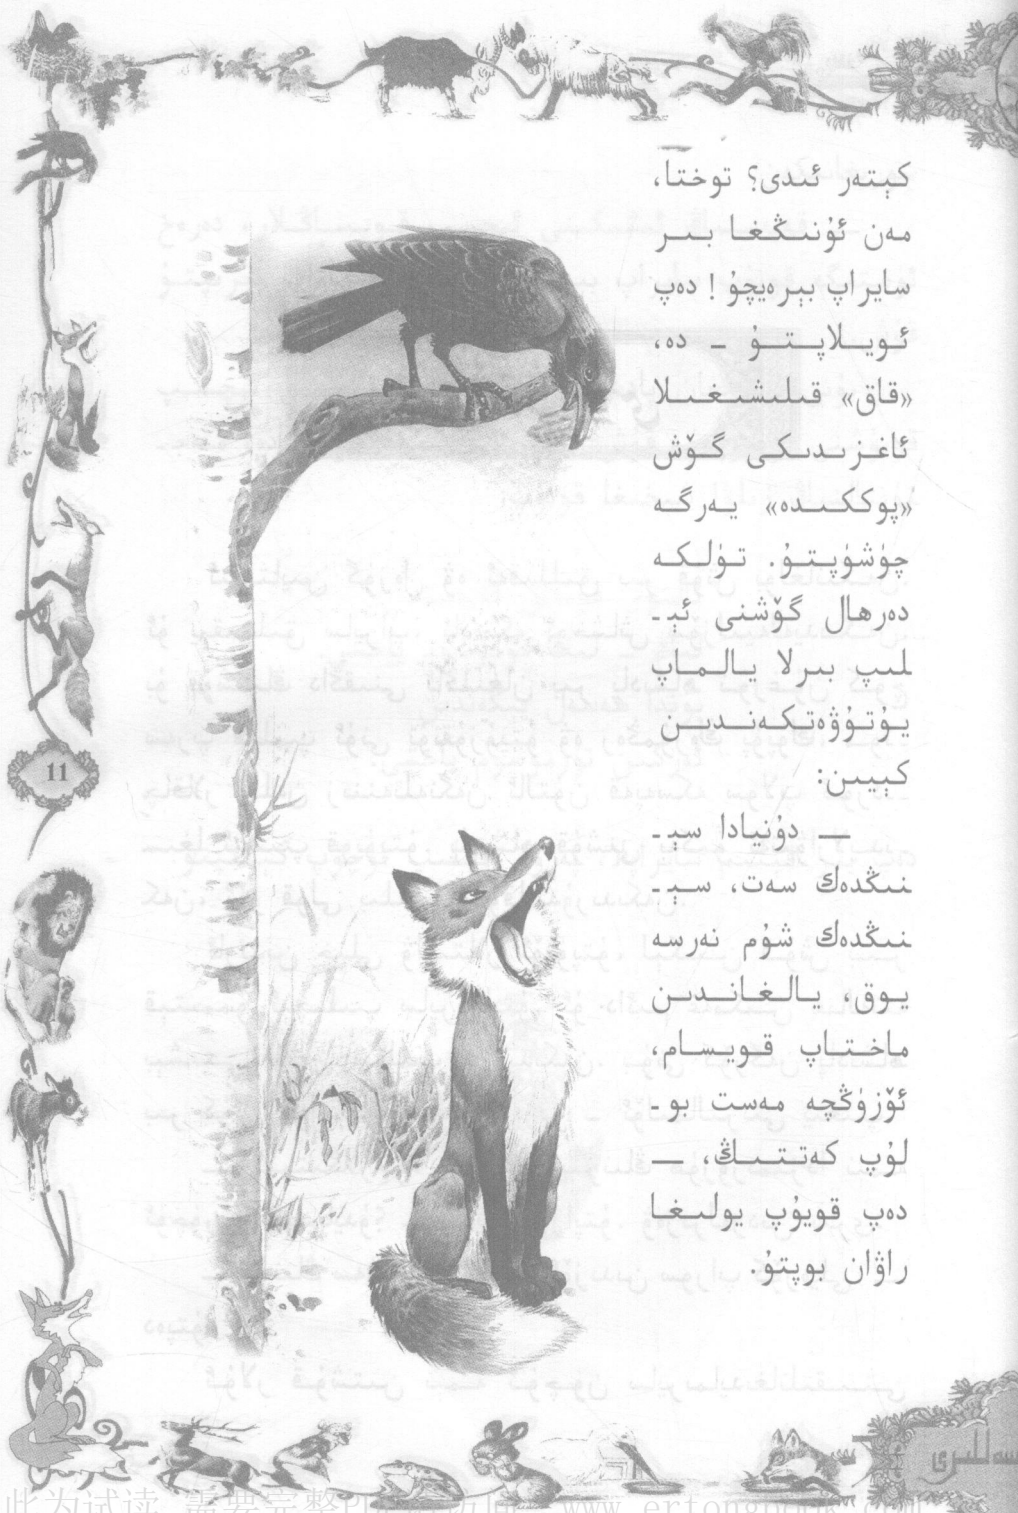 كېتەر ئىدى؟ توختا،
مەن ئۇنىڭغا بىر
سايراپ بېرەيچۇ! دەپ
ئويلاپتۇ - دە،
«قاق» قىلىشىغىلا
ئاغزىدىكى گۆش
«پوككىدە» يەرگە
چۈشۈپتۇ. تۈلكە
دەرھال گۆشنى ئې-
لىپ بىرلا يالماپ
يۇتۇۋەتكەندىن
كېيىن:
— دۇنيادا سې-
نىڭدەك سەت، سې-
نىڭدەك شۇم نەرسە
يوق، يالغاندىن
ماختاپ قويسام،
ئۆزۈڭچە مەست بو-
لۇپ كەتتىڭ، —
دەپ قويۇپ يولىغا
راۋان بوپتۇ.
11
سەللىرى
此为试读,需要完整PDF请访问: www.ertongbook.com